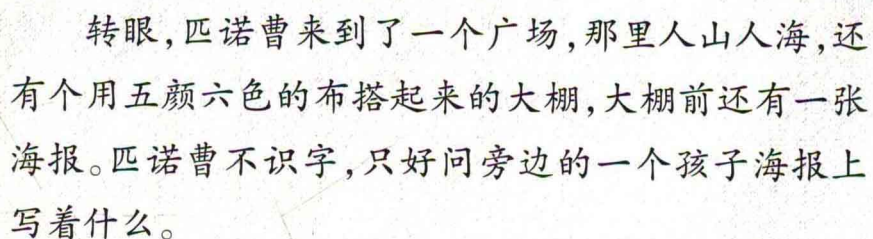 转眼,匹诺曹来到了一个广场,那里人山人海,还
有个用五颜六色的布搭起来的大棚,大棚前还有一张
海报。匹诺曹不识字,只好问旁边的一个孩子海报上
写着什么。